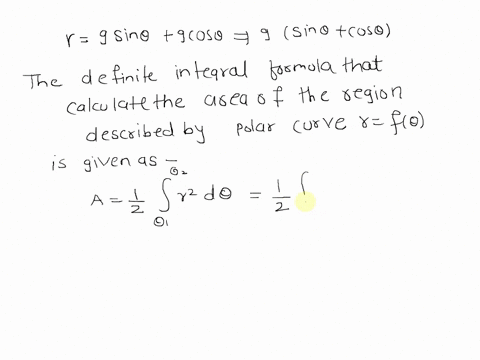 r = 9 sinθ + 9 cosθ ⇒ 9 (sinθ + cosθ)
The definite integral formula that
calculate the area of the region
described by polar curve r = f(θ)
is given as –
A = 1/2 ∫_{θ1}^{θ2} r² dθ = 1/2 ∫